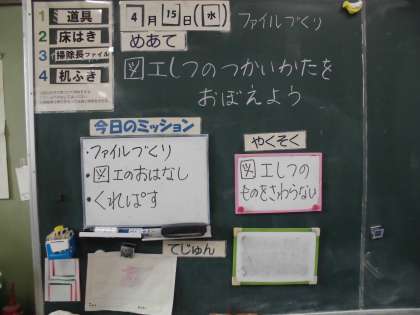 1 道具
2 床はき
3 掃除長ファイル
4 机ふき
4月15日(水)
ファイルづくり
めあて
図工しつのつかいかたを
おぼえよう
今日のミッション
・ファイルづくり
・図工のおはなし
・くれぱす
やくそく
図工しつの
ものをさわらない
てじゅん